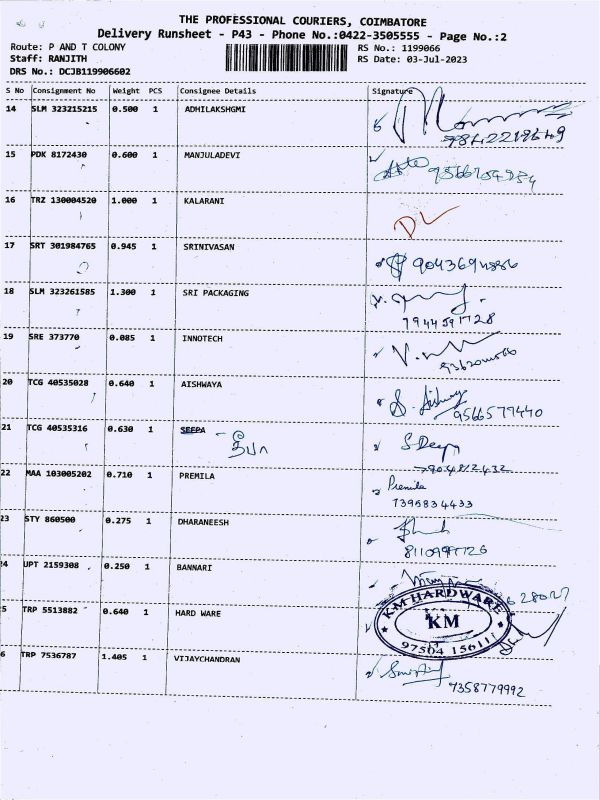 THE PROFESSIONAL COURIERS, COIMBATORE
Delivery Runsheet - P43 - Phone No.:0422-3505555 - Page No.:2
Route: P AND T COLONY RS No.: 1199066
Staff: RANJITH RS Date: 03-Jul-2023
DRS No.: DCJB119906602
S No Consignment No Weight PCS Consignee Details Signature
14 SLM 323215215 0.500 1 ADHILAKSHGMI
15 PDK 8172430 0.600 1 MANJULADEVI
16 TRZ 130004520 1.000 1 KALARANI
DL
17 SRT 301984765 0.945 1 SRINIVASAN
18 SLM 323261585 1.300 1 SRI PACKAGING
19 SRE 373770 0.085 1 INNOTECH
20 TCG 40535028 0.640 1 AISHWAYA
S. Aishwy
9566577440
21 TCG 40535316 0.630 1 SEEPA
தீபா
S Deepa
22 MAA 103005202 0.710 1 PREMILA
Premila
7395834433
23 STY 860500 0.275 1 DHARANEESH
24 UPT 2159308 0.250 1 BANNARI
5 TRP 5513882 0.640 1 HARD WARE
KM HARDWARE
KM
97504 15611
6 TRP 7536787 1.405 1 VIJAYCHANDRAN
7358779992